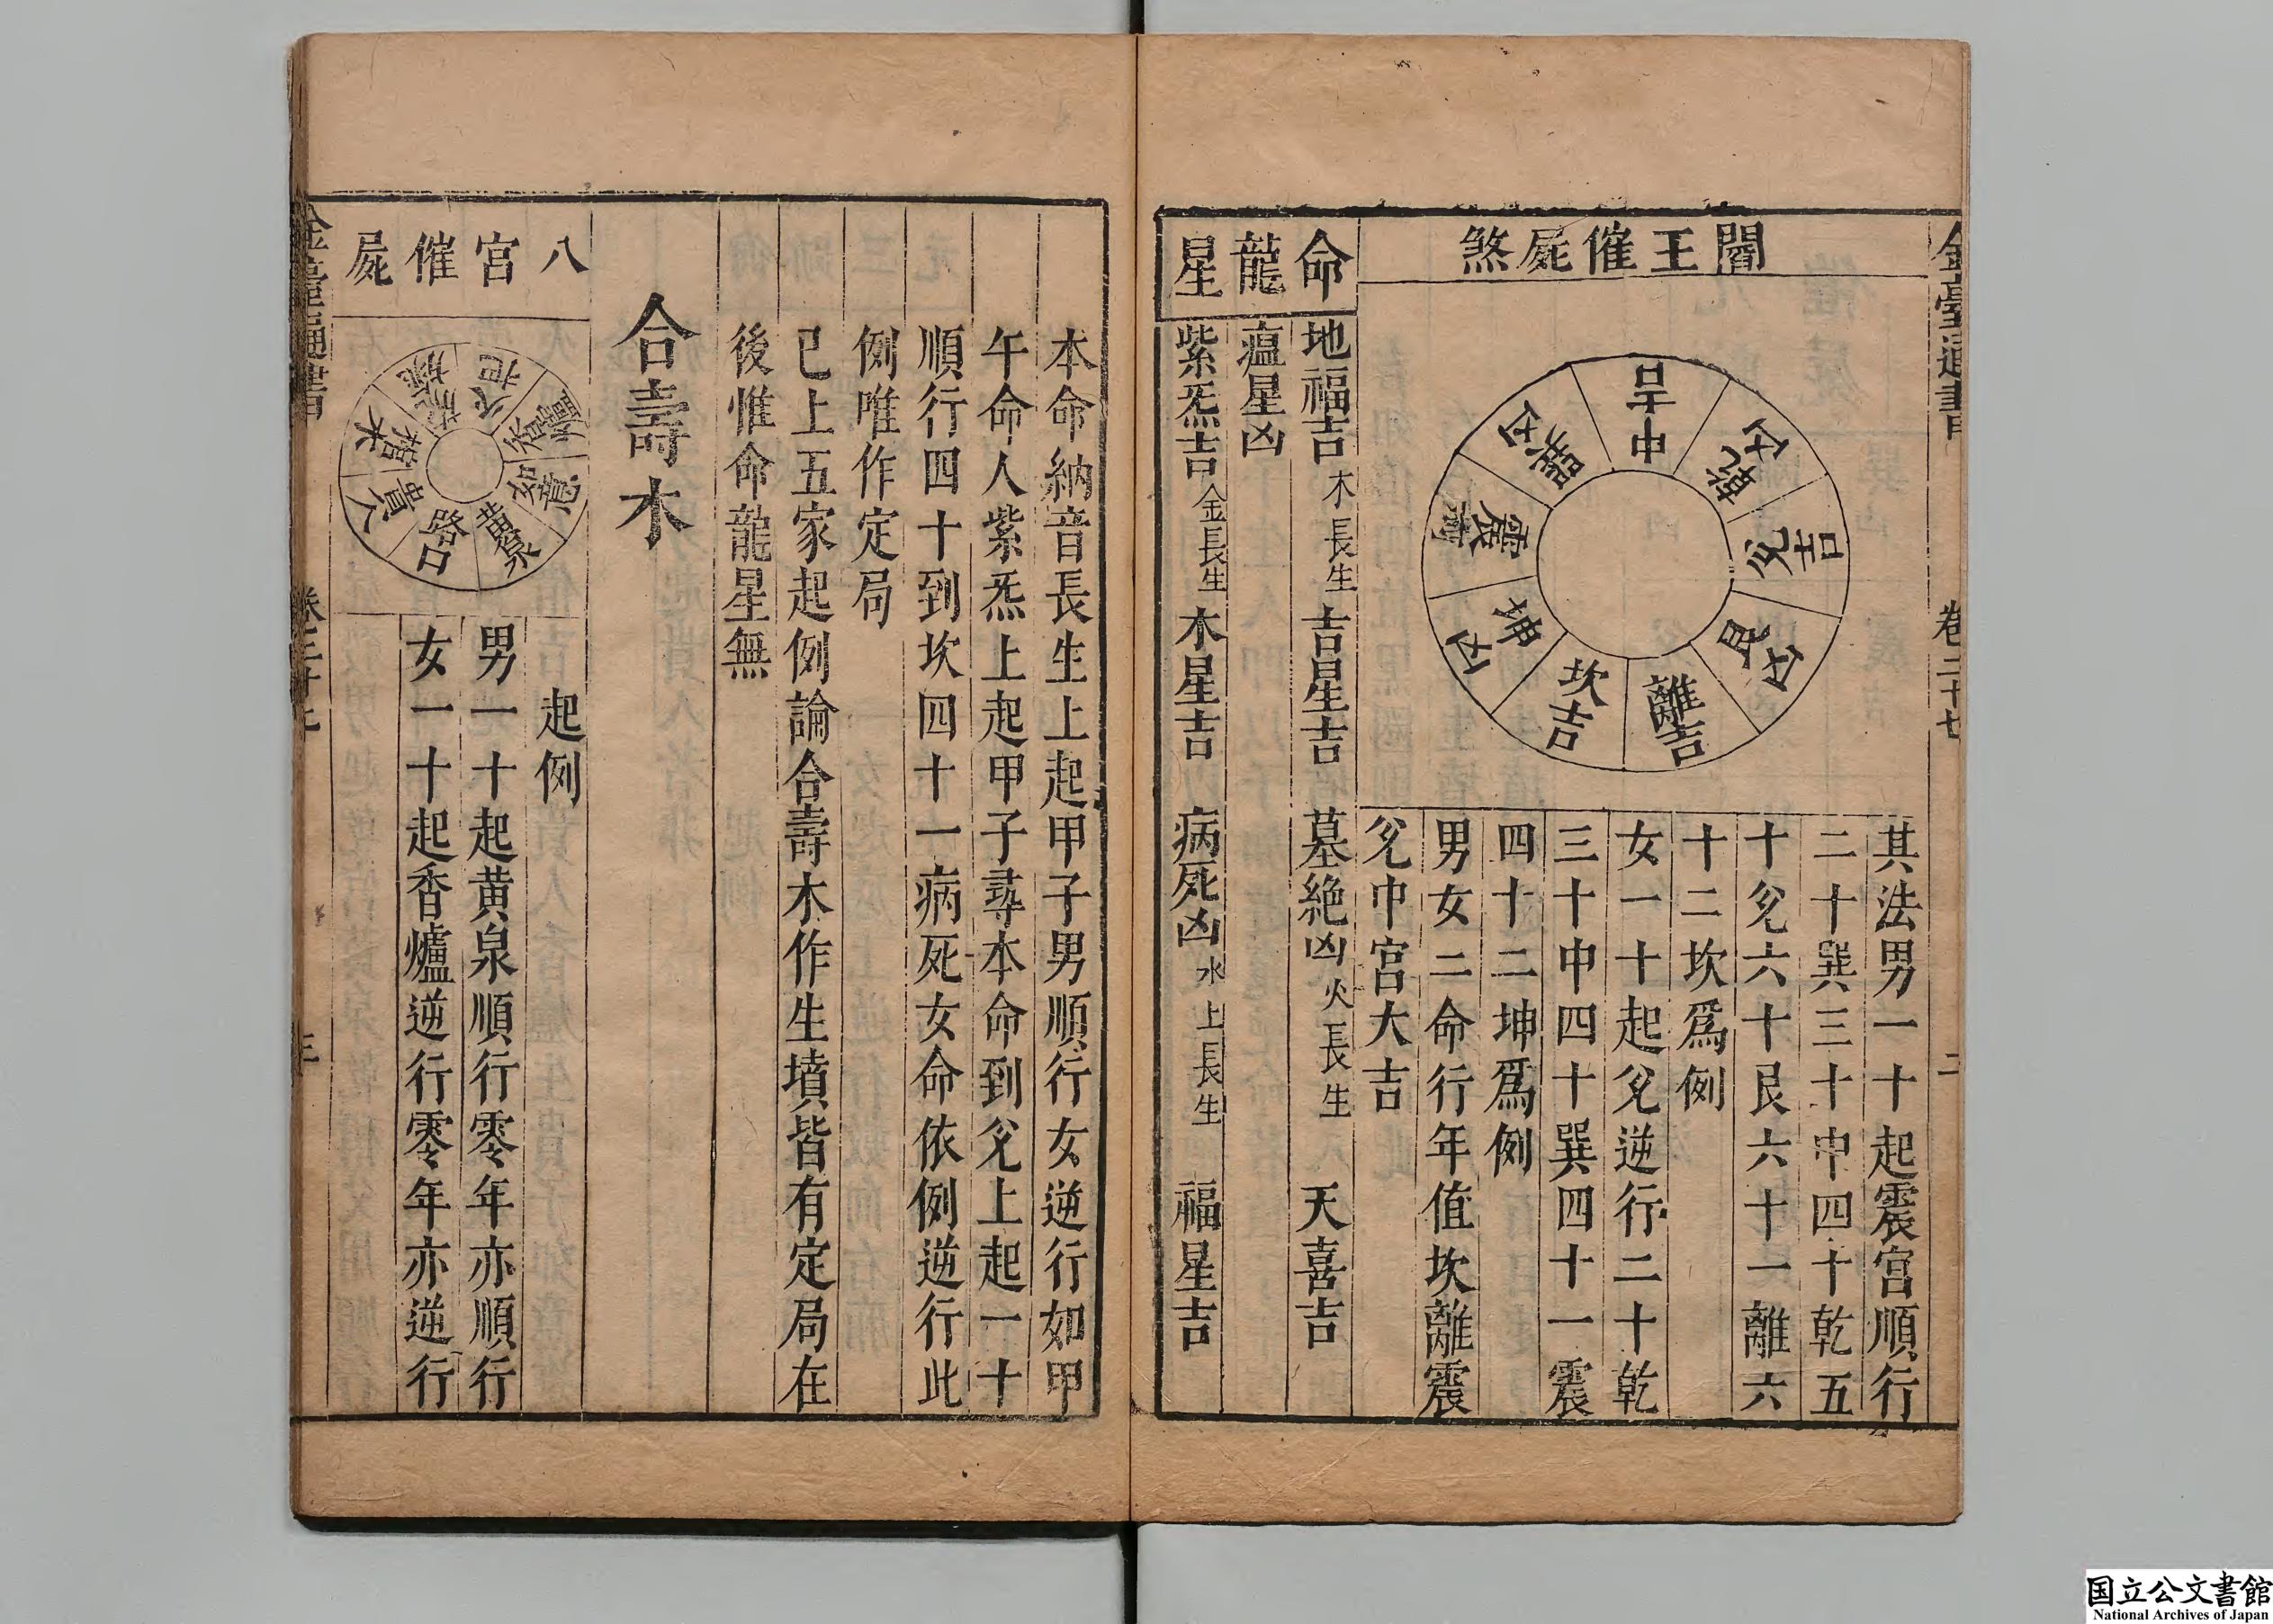 金臺通書 卷二十七 二
閻王催屍煞
中吉
乾
兌吉
艮
離吉
坎吉
坤
震
巽
其法男一十起震宮順行
二十巽三十中四十乾五
十兌六十艮六十一離六
十二坎爲例
女一十起兌逆行二十乾
三十中四十巽四十一震
四十二坤爲例
男女二命行年值坎離震
兌中宮大吉
命龍星
地福吉木長生 吉星吉 墓絶凶火長生 天喜吉
瘟星凶
紫炁吉金長生 木星吉 病死凶水上長生 福星吉
本命納音長生上起甲子男順行女逆行如甲
午命人紫炁上起甲子尋本命到兌上起一十
順行四十到坎四十一病死女命依例逆行此
例唯作定局
已上五家起例論合壽木作生墳皆有定局在
後惟命龍星無
合壽木
八宮催屍
香爐
如意
黄泉
路口
貴人
棺木
起例
男一十起黄泉順行零年亦順行
女一十起香爐逆行零年亦逆行
金臺通書 卷二十七 三
国立公文書館
National Archives of Japan